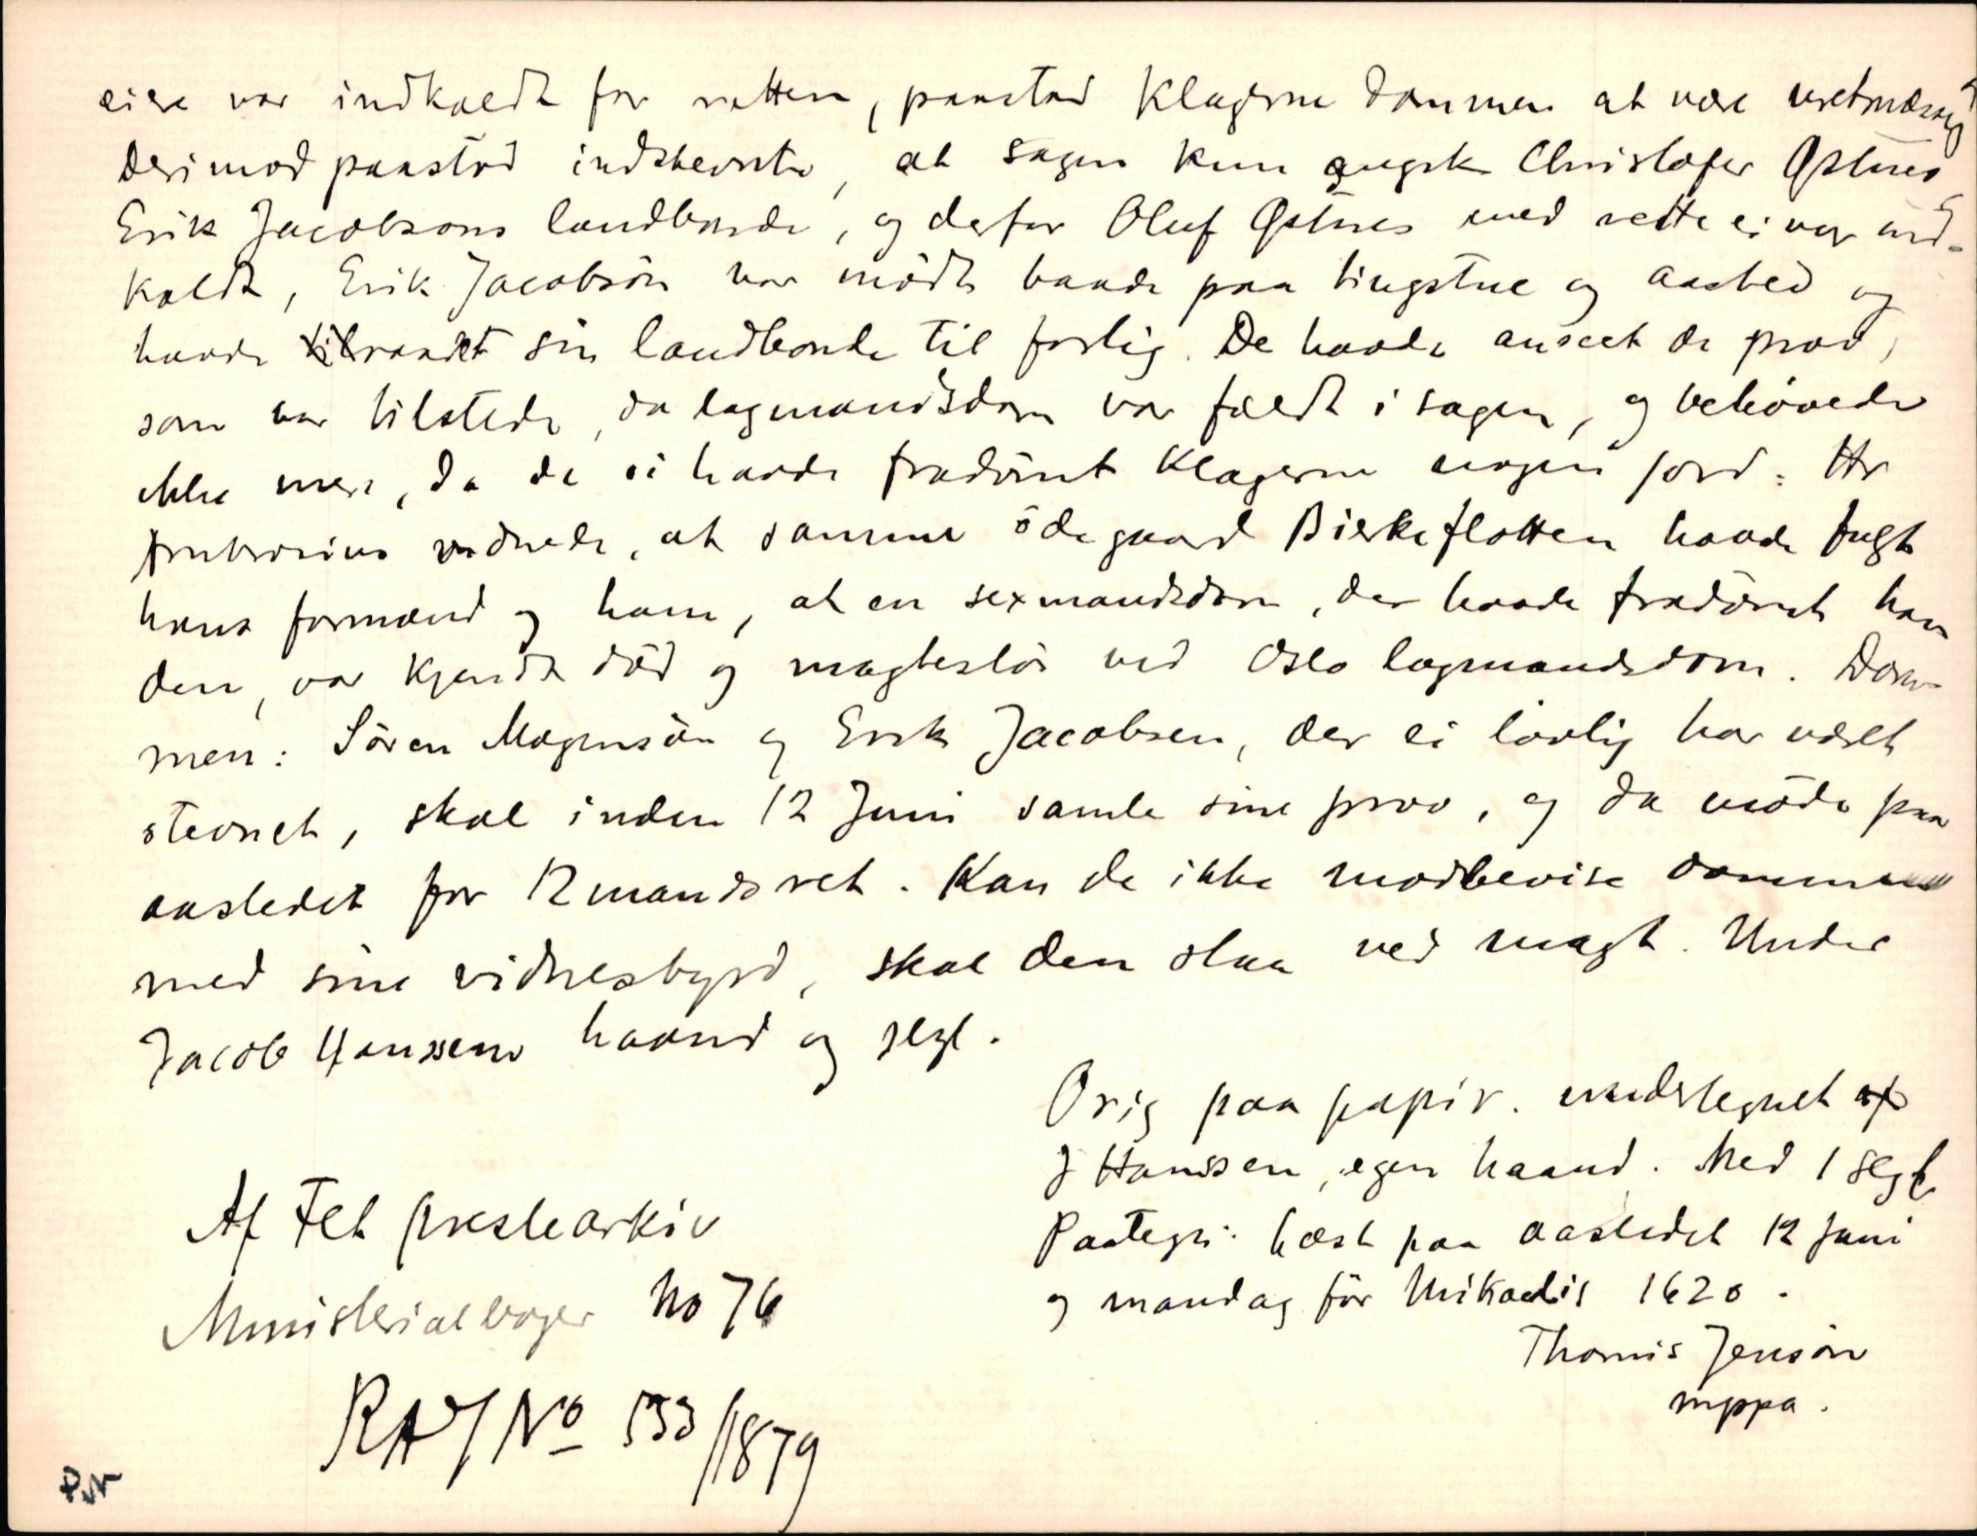 eiere var indkaldt for retten, paastod Klagerne dommen at være uretmæssig
Derimod paastod indstevnte, at sagen kun angik Christofer Østnes
Erik Jacobsons landbonde, og derfor Oluf Østnes med rette ei var ind-
kaldt, Erik Jacobsön var mödt baade paa tingstue og aasted og
havde tilraadet sin landbonde til forlig. De havde anseet de prov,
som var tilstede, da lagmandsdom var fældt i sagen, og behövede
ikke mere, da de ei havde fradömt Klagerne nogen jord. Hr
Ambrosius vidnede, at samme ödegaard Birkeflotten havde fulgt
hans formænd og ham, at en sexmandsdom, der havde fradömt ham
den, var kjendt död og magteslös ved Oslo lagmandsdom. Dom-
men: Sören Mogensön og Erik Jacobsen, der ei lovlig har været
stevnet, skal inden 12 Juni samle sine prov, og da möde paa
aastedet for 12mandsret. Kan de ikke modbevise dommen
med sine vidnesbyrd, skal den staa ved magt. Under
Jacob Hanssens haand og segl.
Orig paa papir. undertegnet af
J Hanssen, egen haand. Med 1 segl.
Paategn: læst paa aastedet 12 juni
og mandag för Mikaelis 1620.
Thomis Jensön
mppa.
Af Fet prestearkiv
Ministerialboger No 76
RAJ No 533/1879